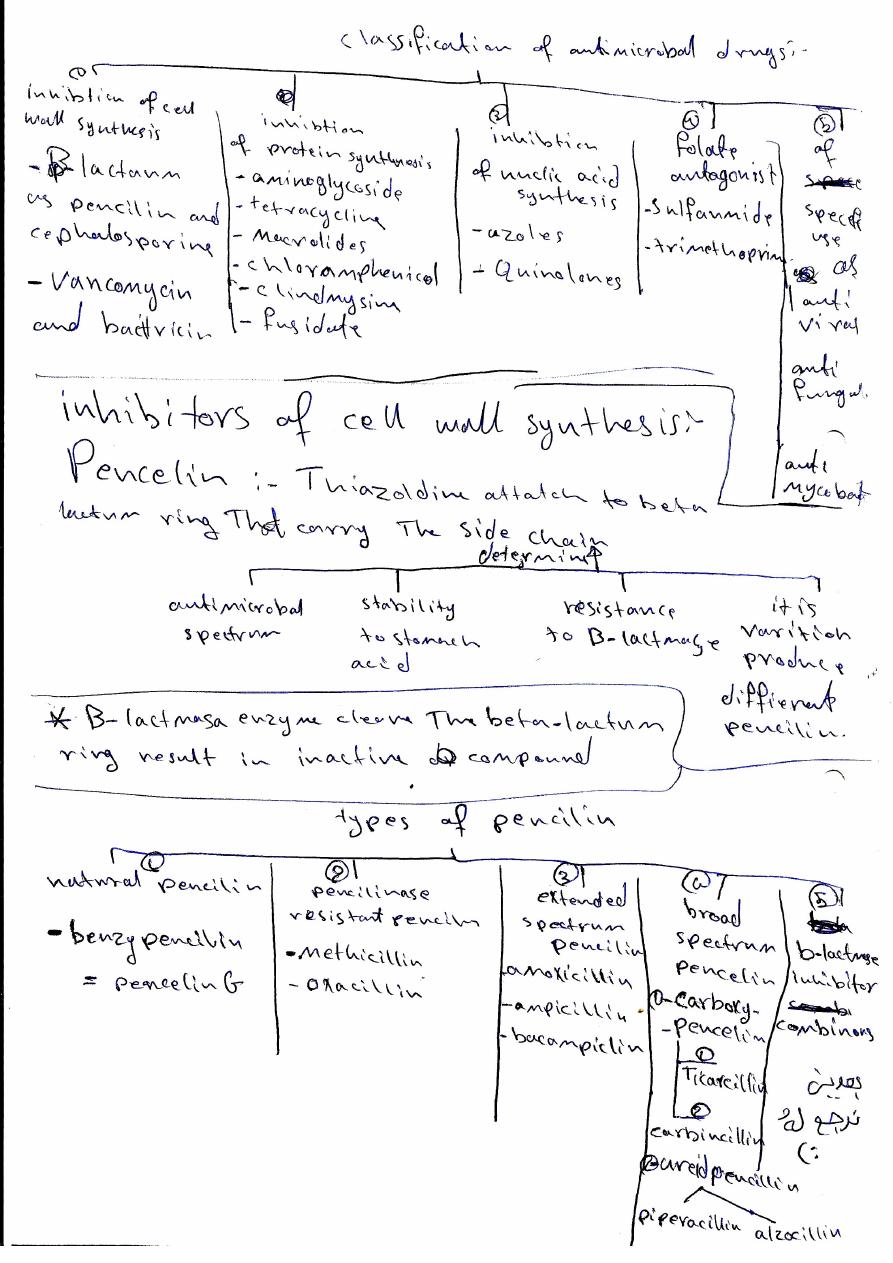 classification of antimicrobal drugs:-
①
inhibtion of cell
wall synthesis
- B-lactaum
as pencilin and
cephalosporine
- Vancomycin
and
inhibtion
of protein synthosis
- aminoglycoside
- tetracycline
- Macrolides
- chloramphenicol
- clindmysim
- fusidate
③
inhibtion
of nuclic acid
synthesis
- azoles
- Quinolones
④
folate
antagonist
- sulfanmide
- trimethoprim
⑤
of
specfi
use
as
anti
viral
anti
fungal.
anti
mycobat
inhibitors of cell wall synthesis:-
Pencelin :- Thiazoldine attatch to beta
lactum ring That carry The side chain
determint
antimicrobal
spectrum
stability
to stomach
acid
resistance
to B-lactmage
it is
varition
produce
diffirent
pencilin.
* B-lactmasa enzyme cleave The beta-lactum
ring result in inactive compound
types of pencilin
①
natural pencilin
- benzypencilin
= pencelin G
②
pencilinase
resistant pencilin
- Methicillin
- oxacillin
③
extended
spectrum
pencilin
- amoxicillin
- ampicillin
- bacampiclin
④
broad
spectrum
pencelin
①-carboxy-
-pencelin
①
Ticarcillin
②
carbincillin
②-ureidpencillin
piperacillin alzocillin
⑤
b-lactmase
inhibitor
combinons
بعدين
نرجع له
(: